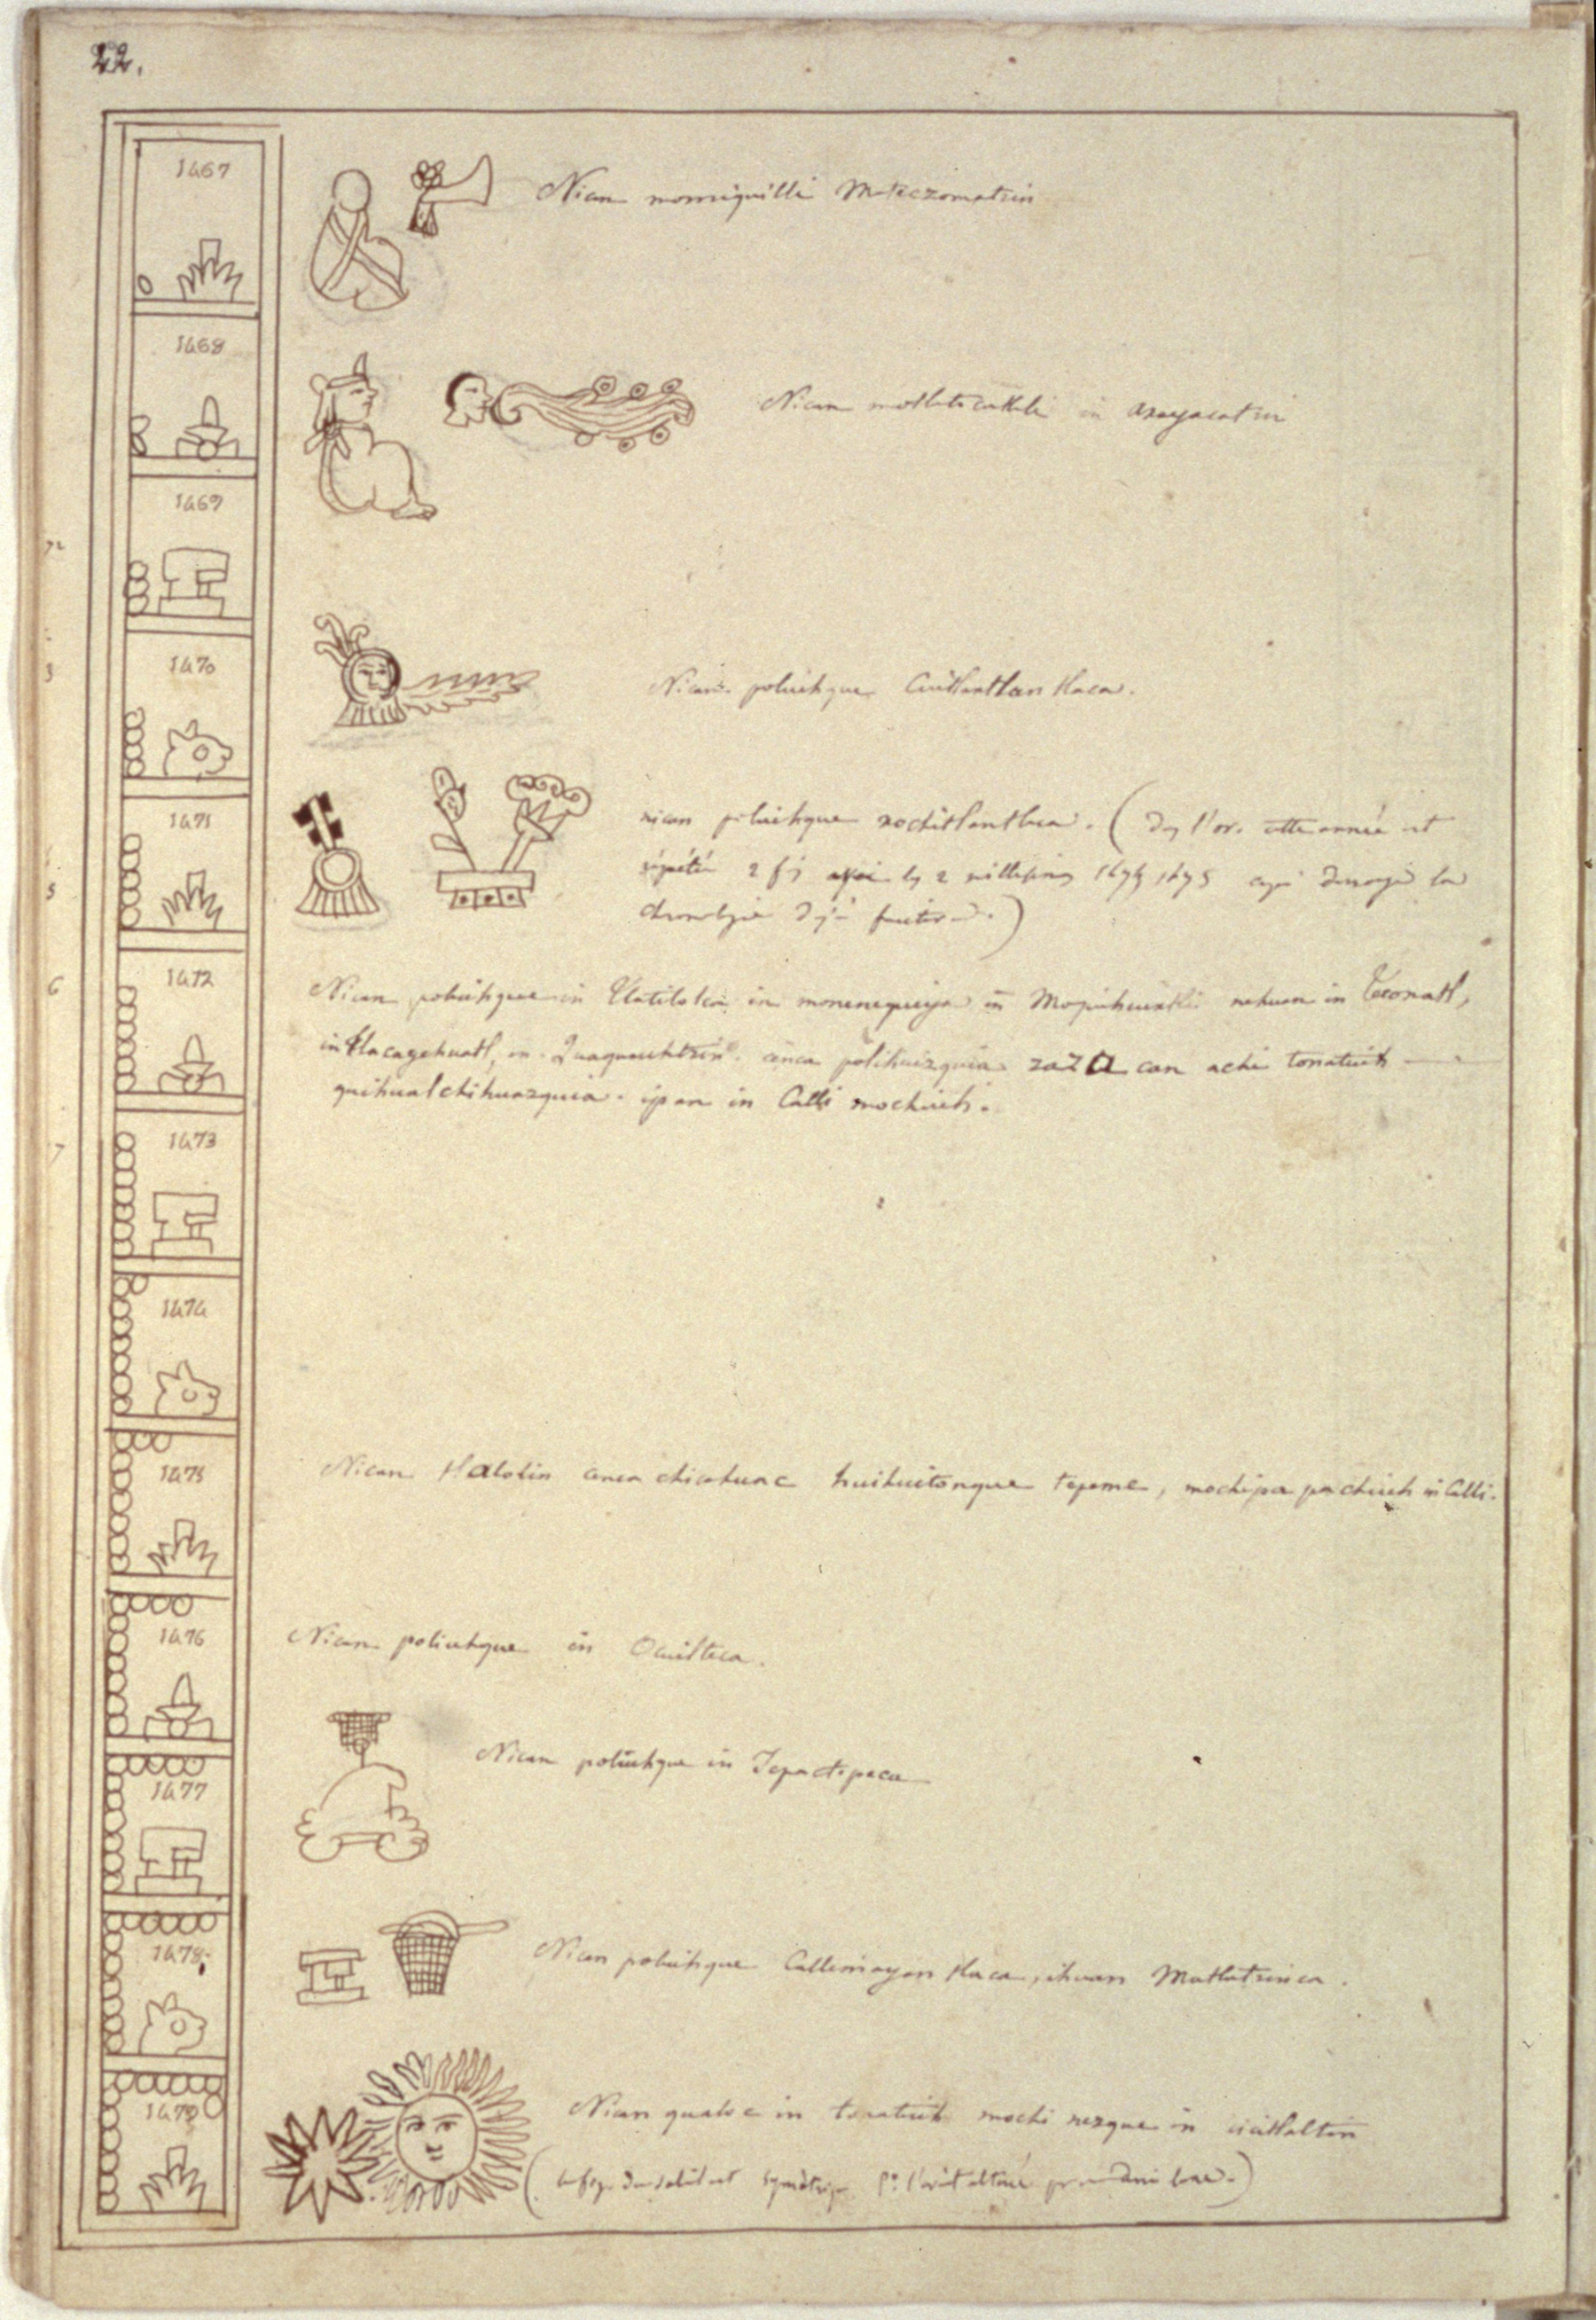 22.
1467
Nican momiquilli Moteczomatzin
1468
Nican motlatocatlali in axayacatzin
1469
1470
Nican poliuhque Cuitlantlan tlaca.
1471
nican poliuhque xochitlantlaca. (Ds l'or. cette année est
répétée 2 fs 2 millésimes
chronologie déjà
1472
6
Nican poliuhque in Tlatilolca in monenequiya in Moquihuixtli nehuan in Teconatl,
in tlacagehuatl, in Quaquauhtzin. cenca polihuizquia zaza can achi tonatiuh
quihualchihuazquia. ipan in Calli mochiuh.
1473
7
1474
1475
Nican tlalolin cenca chicahuac huihuitonque tepeme, mochipa pachiuh in Calli.
1476
Nican poliuhque in Ocuilteca.
1477
Nican poliuhque in Tepactepeca
1478
Nican poliuhque Callimayan tlaca, ihuan Matlatzinca.
1479
Nican qualoc in tonatiuh mochi nezque in cicitlaltin
(la fig. du soleil est symétriq.